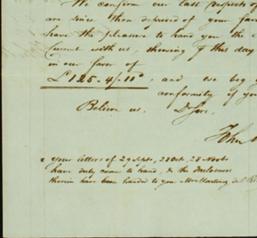 We confirm our last respects of
are since then deprived of your fav
have the pleasure to hand you the
Current with us, showing of this day
in our favor of
£125.4/11d, and we beg
conformity of you
Believe us, D. Sirs.
John
your letters of 29 Septr, 28 Oct, 28 Novbr
have duly come to hand, & the inclosures
therein have been handed to you